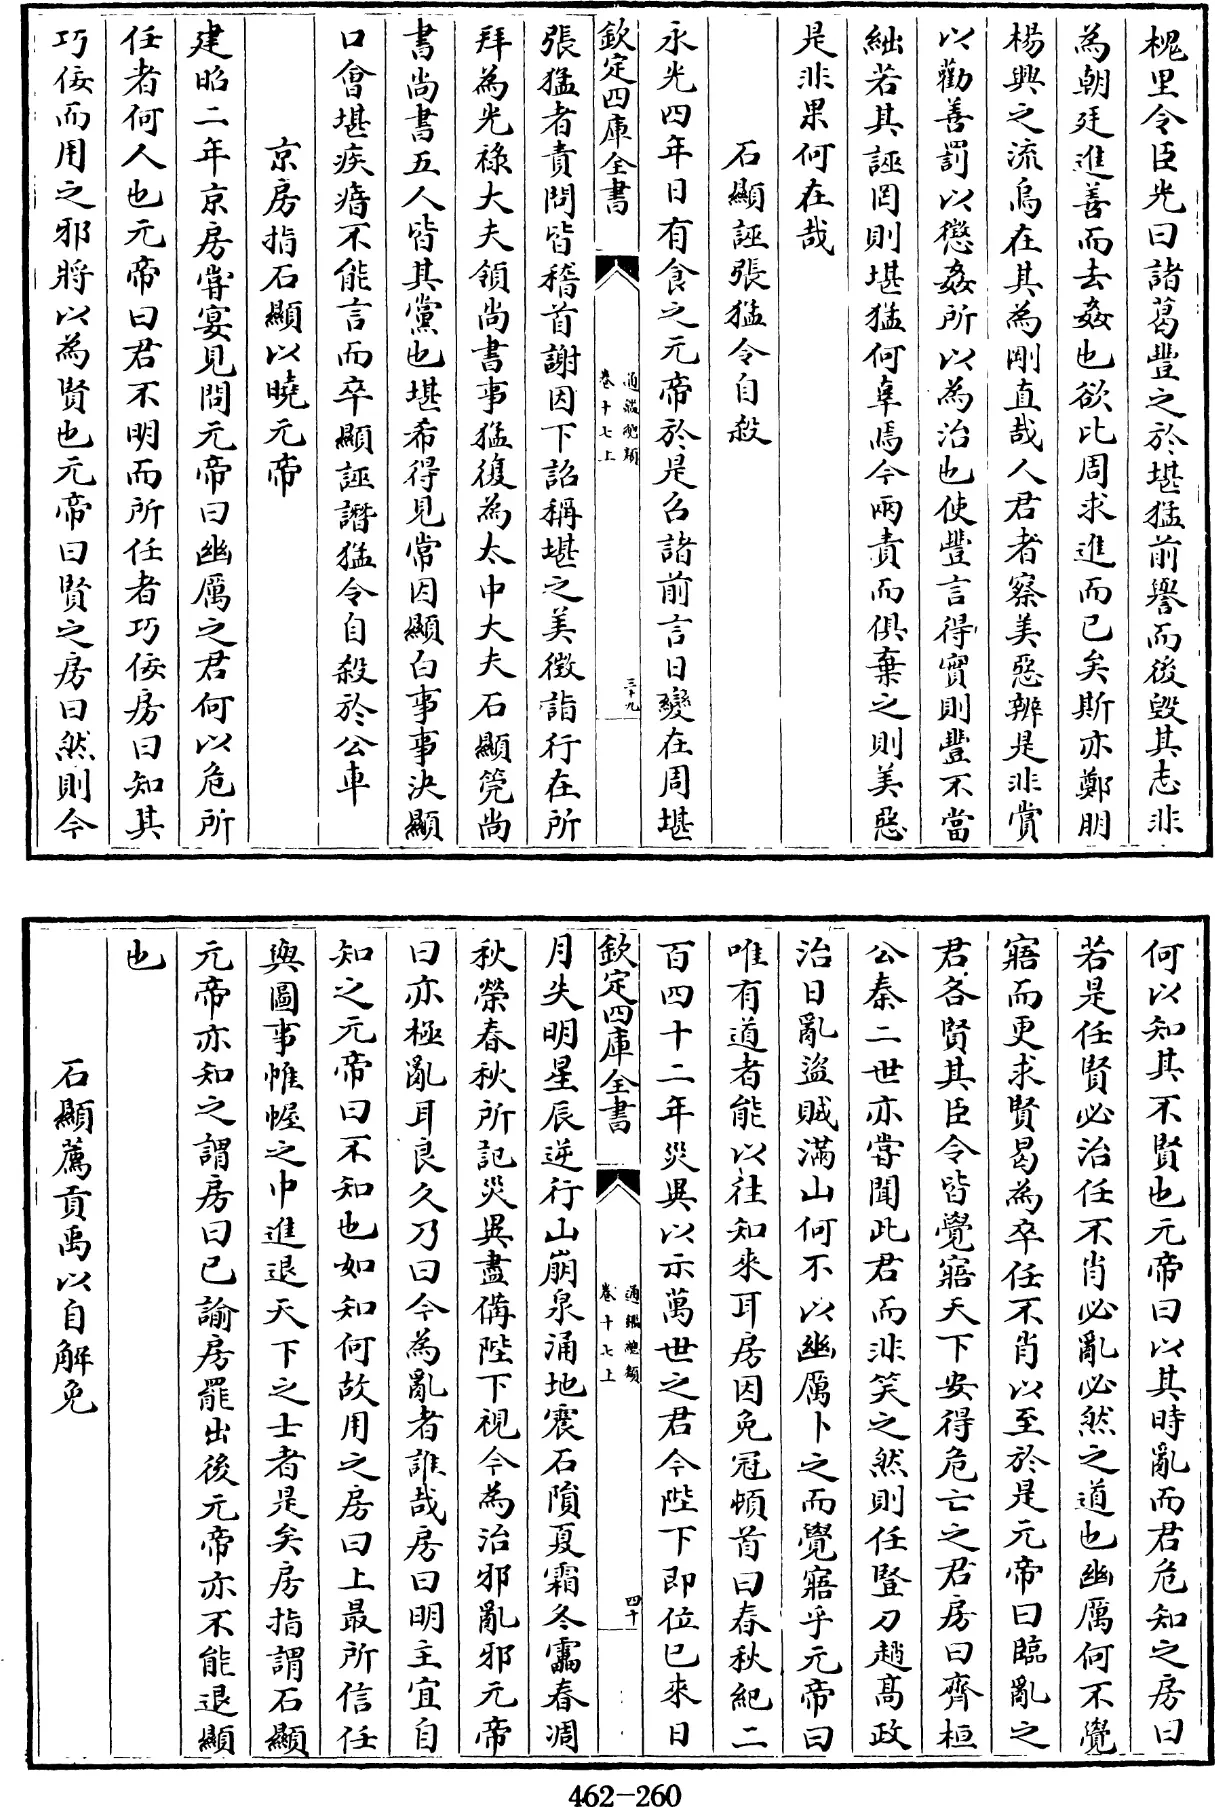 槐里令臣光曰諸葛豐之於堪猛前譽而後毀其志非
為朝廷進善而去姦也欲比周求進而已矣斯亦鄭朋
楊興之流烏在其為剛直哉人君者察美惡辨是非賞
以勸善罰以懲姦所以為治也使豐言得實則豐不當
絀若其誣罔則堪猛何辜焉今兩責而俱棄之則美惡
是非果何在哉
石顯誣張猛令自殺
永光四年日有食之元帝於是召諸前言日變在周堪
欽定四庫全書
通鑑總類
卷十七上
三十九
張猛者責問皆稽首謝因下詔稱堪之美徵詣行在所
拜為光祿大夫領尚書事猛復為太中大夫石顯筦尚
書尚書五人皆其黨也堪希得見常因顯白事事決顯
口會堪疾瘖不能言而卒顯誣譖猛令自殺於公車
京房指石顯以曉元帝
建昭二年京房嘗宴見問元帝曰幽厲之君何以危所
任者何人也元帝曰君不明而所任者巧佞房曰知其
巧佞而用之邪將以為賢也元帝曰賢之房曰然則今
何以知其不賢也元帝曰以其時亂而君危知之房曰
若是任賢必治任不肖必亂必然之道也幽厲何不覺
寤而更求賢曷為卒任不肖以至於是元帝曰臨亂之
君各賢其臣令皆覺寤天下安得危亡之君房曰齊桓
公秦二世亦嘗聞此君而非笑之然則任豎刁趙高政
治日亂盜賊滿山何不以幽厲卜之而覺寤乎元帝曰
唯有道者能以往知來耳房因免冠頓首曰春秋紀二
百四十二年災異以示萬世之君今陛下即位已來日
欽定四庫全書
通鑑總類
卷十七上
四十
月失明星辰逆行山崩泉涌地震石隕夏霜冬靁春凋
秋榮春秋所記災異盡備陛下視今為治邪亂邪元帝
曰亦極亂耳良久乃曰今為亂者誰哉房曰明主宜自
知之元帝曰不知也如知何故用之房曰上最所信任
與圖事帷幄之中進退天下之士者是矣房指謂石顯
元帝亦知之謂房曰已諭房罷出後元帝亦不能退顯
也
石顯薦貢禹以自解免
462-260